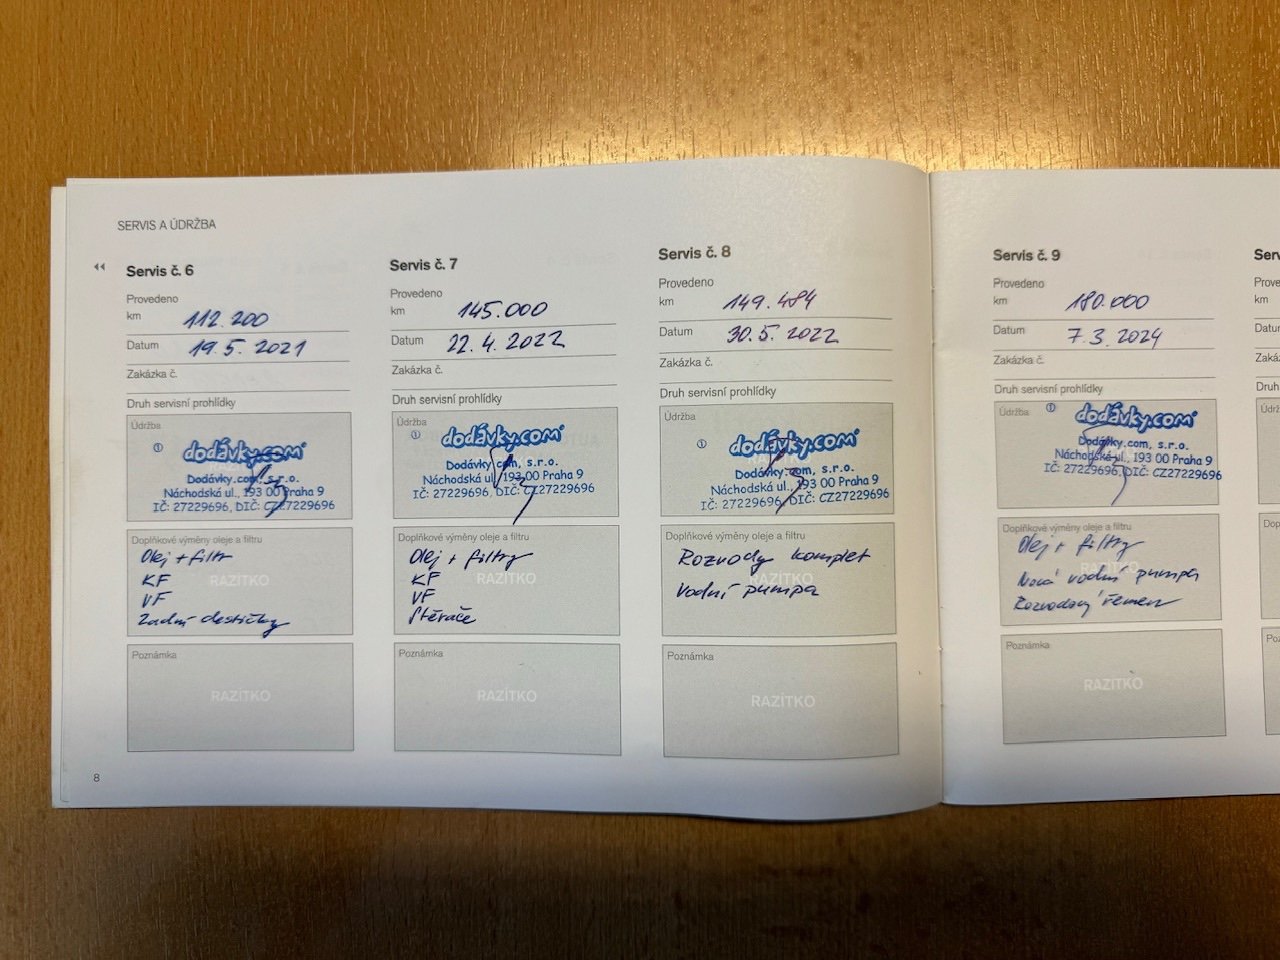 SERVIS A ÚDRŽBA
Servis č. 6
Provedeno
km 112.200
Datum 19.5.2021
Zakázka č.
Druh servisní prohlídky
Údržba
① dodávky.com
Dodávky.com, s.r.o.
Náchodská ul., 193 00 Praha 9
IČ: 27229696, DIČ: CZ27229696
Doplňkové výměny oleje a filtru
RAZÍTKO
Olej + filtr
KF
VF
Zadní destičky
Poznámka
RAZÍTKO
8
Servis č. 7
Provedeno
km 145.000
Datum 22.4.2022
Zakázka č.
Druh servisní prohlídky
Údržba
① dodávky.com
Dodávky.com, s.r.o.
Náchodská ul., 193 00 Praha 9
IČ: 27229696, DIČ: CZ27229696
Doplňkové výměny oleje a filtru
RAZÍTKO
Olej + filtry
KF
VF
Stěrače
Poznámka
RAZÍTKO
Servis č. 8
Provedeno
km 149.484
Datum 30.5.2022
Zakázka č.
Druh servisní prohlídky
Údržba
① dodávky.com
Dodávky.com, s.r.o.
Náchodská ul., 193 00 Praha 9
IČ: 27229696, DIČ: CZ27229696
Doplňkové výměny oleje a filtru
RAZÍTKO
Rozvody komplet
Vodní pumpa
Poznámka
RAZÍTKO
Servis č. 9
Provedeno
km 180.000
Datum 7.3.2024
Zakázka č.
Druh servisní prohlídky
Údržba
① dodávky.com
Dodávky.com, s.r.o.
Náchodská ul., 193 00 Praha 9
IČ: 27229696, DIČ: CZ27229696
Doplňkové výměny oleje a filtru
RAZÍTKO
Olej + filtry
Nová vodní pumpa
Rozvodový řemen
Poznámka
RAZÍTKO